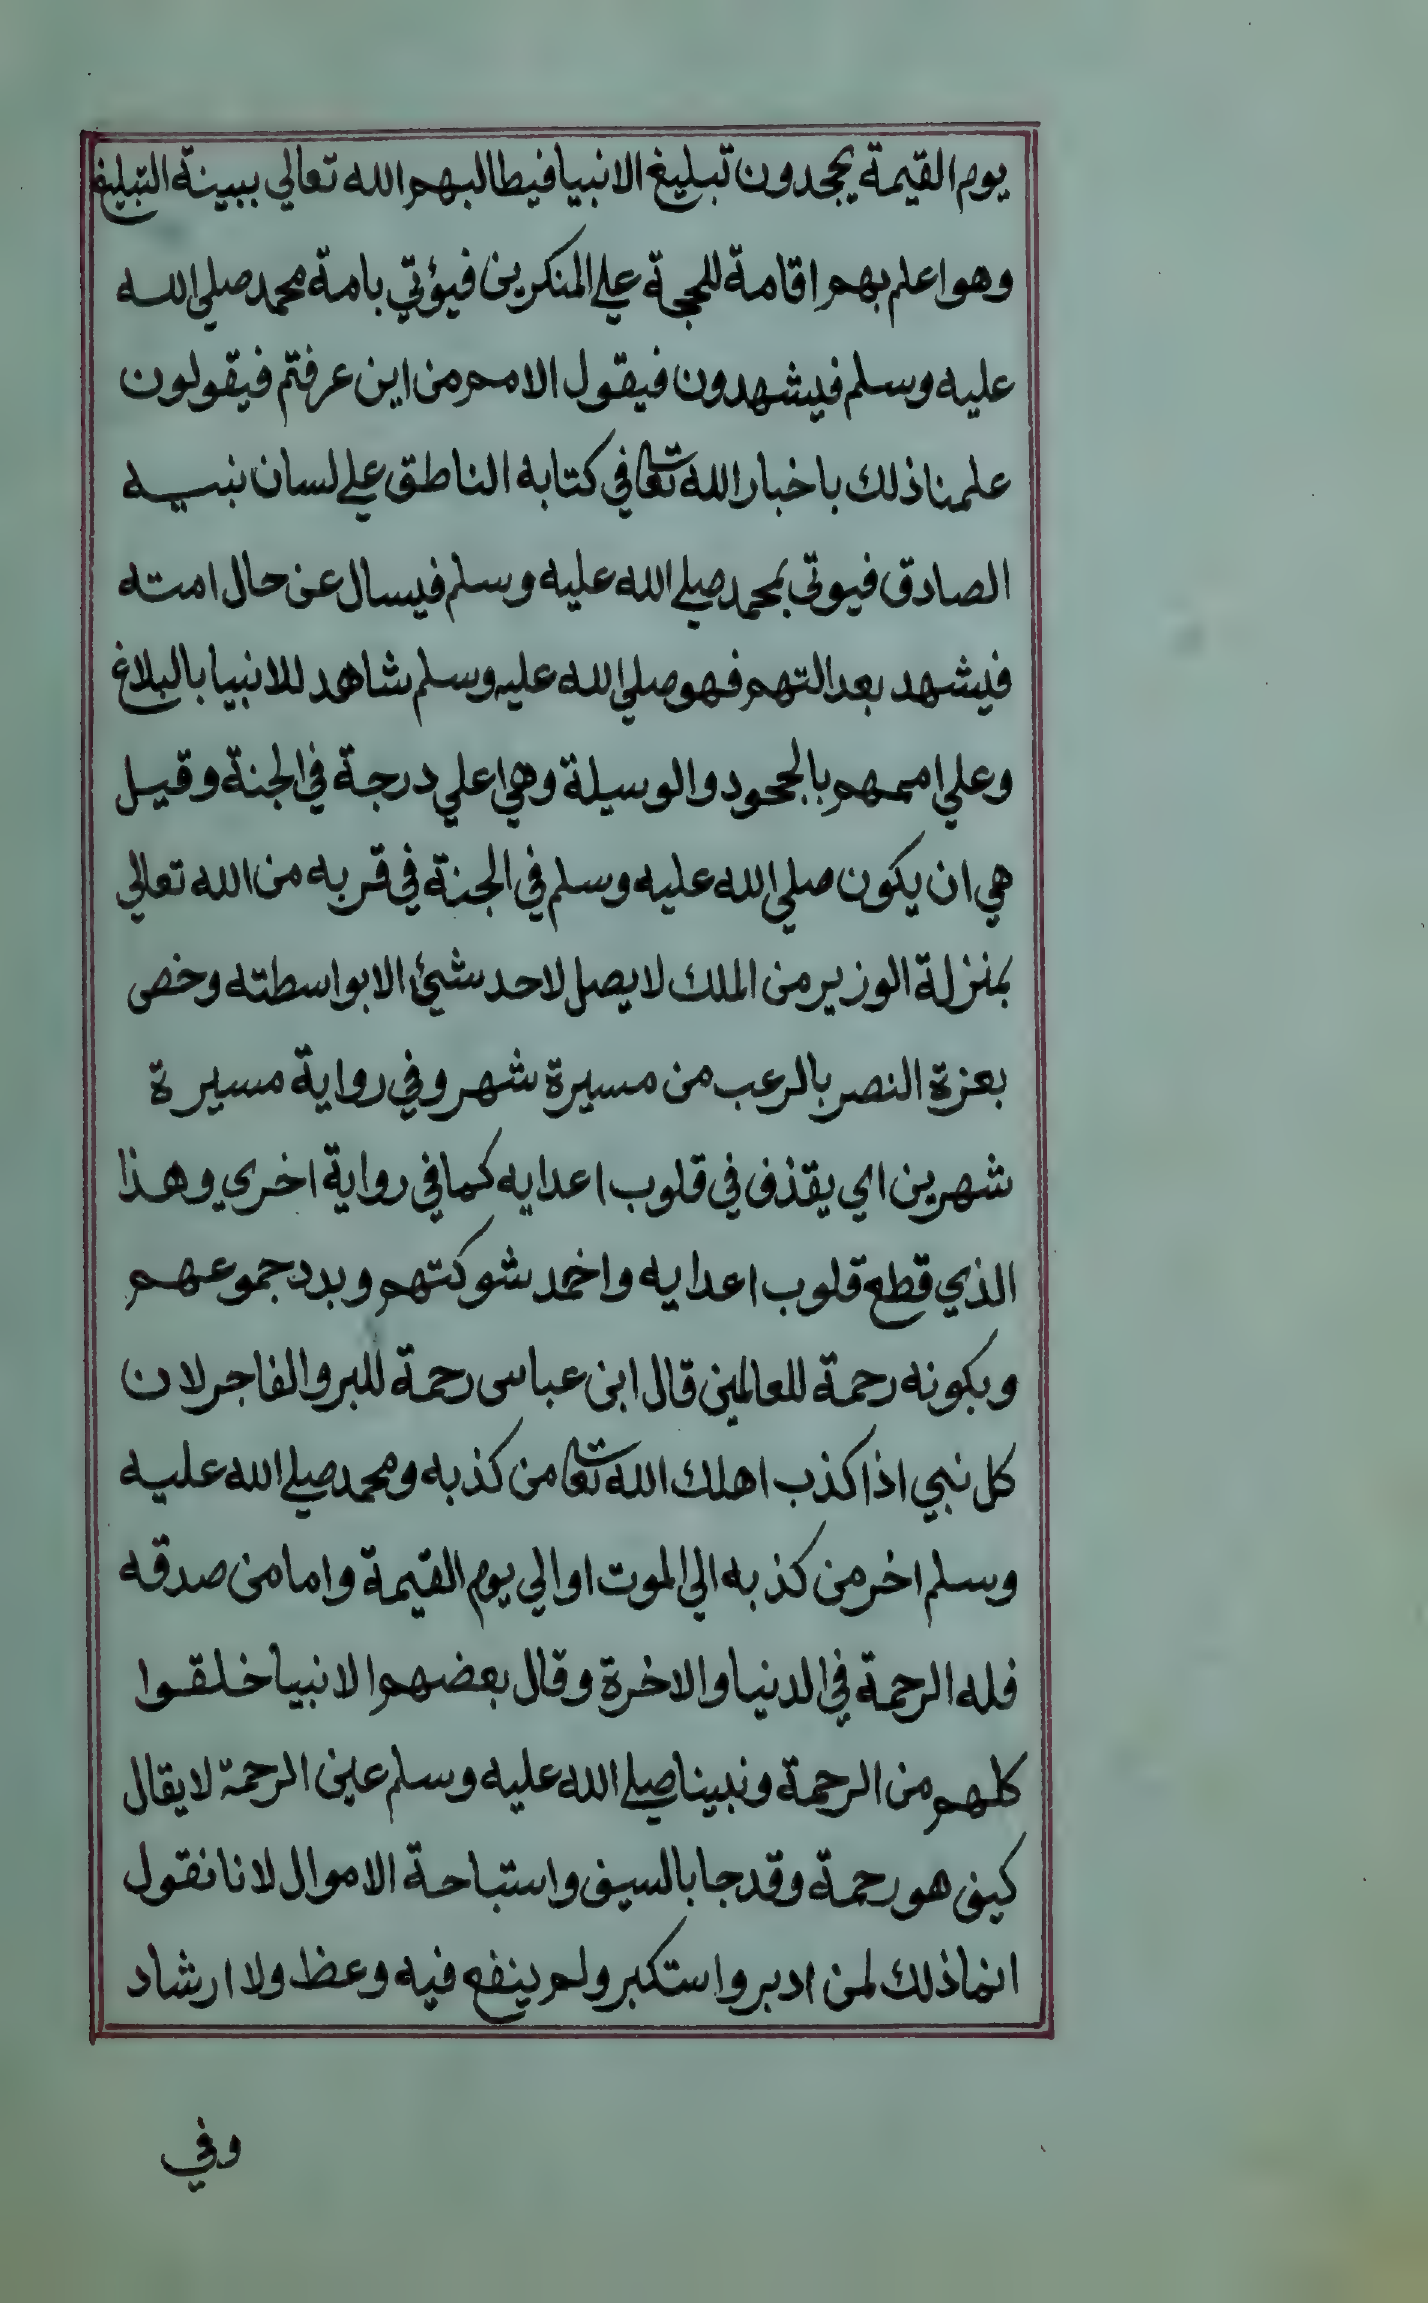 يوم القيمة يجحدون تبليغ الانبيا فيطالبهم الله تعالي ببينة التبليغ
وهو اعلم بهم اقامة للحجة علي المنكرين فيؤتي بامة محمد صلي الله
عليه وسلم فيشهدون فيقول الامم من اين عرفتم فيقولون
علمنا ذلك باخبار الله تعا في كتابه الناطق علي لسان نبيه
الصادق فيوتي بمحمد صلي الله عليه وسلم فيسال عن حال امته
فيشهد بعدالتهم فهو صلي الله عليه وسلم شاهد للانبيا بالبلاغ
وعلي اممهم بالجحود والوسيلة وهي اعلي درجة في الجنة وقيل
هي ان يكون صلي الله عليه وسلم في الجنة في قربه من الله تعالي
بمنزلة الوزير من الملك لا يصل لاحد شئ الا بواسطته وخص
بعزة النصر بالرعب من مسيرة شهر وفي رواية مسيرة
شهرين اي يقذف في قلوب اعدايه كما في رواية اخري وهذا
الذي قطع قلوب اعدايه واخمد شوكتهم وبدد جموعهم
وبكونه رحمة للعالمين قال ابن عباس رحمة للبر والفاجر لان
كل نبي اذا كذب اهلك الله تعا من كذبه ومحمد صلي الله عليه
وسلم اخر من كذبه الي الموت او الي يوم القيمة واما من صدقه
فله الرحمة في الدنيا والاخرة وقال بعضهم الانبيا خلقوا
كلهم من الرحمة ونبينا صلي الله عليه وسلم عين الرحمة لا يقال
كيف هو رحمة وقد جا بالسيف واستباحة الاموال لانا نقول
انما ذلك لمن ادبر واستكبر ولم ينفع فيه وعظ ولا ارشاد
وفي